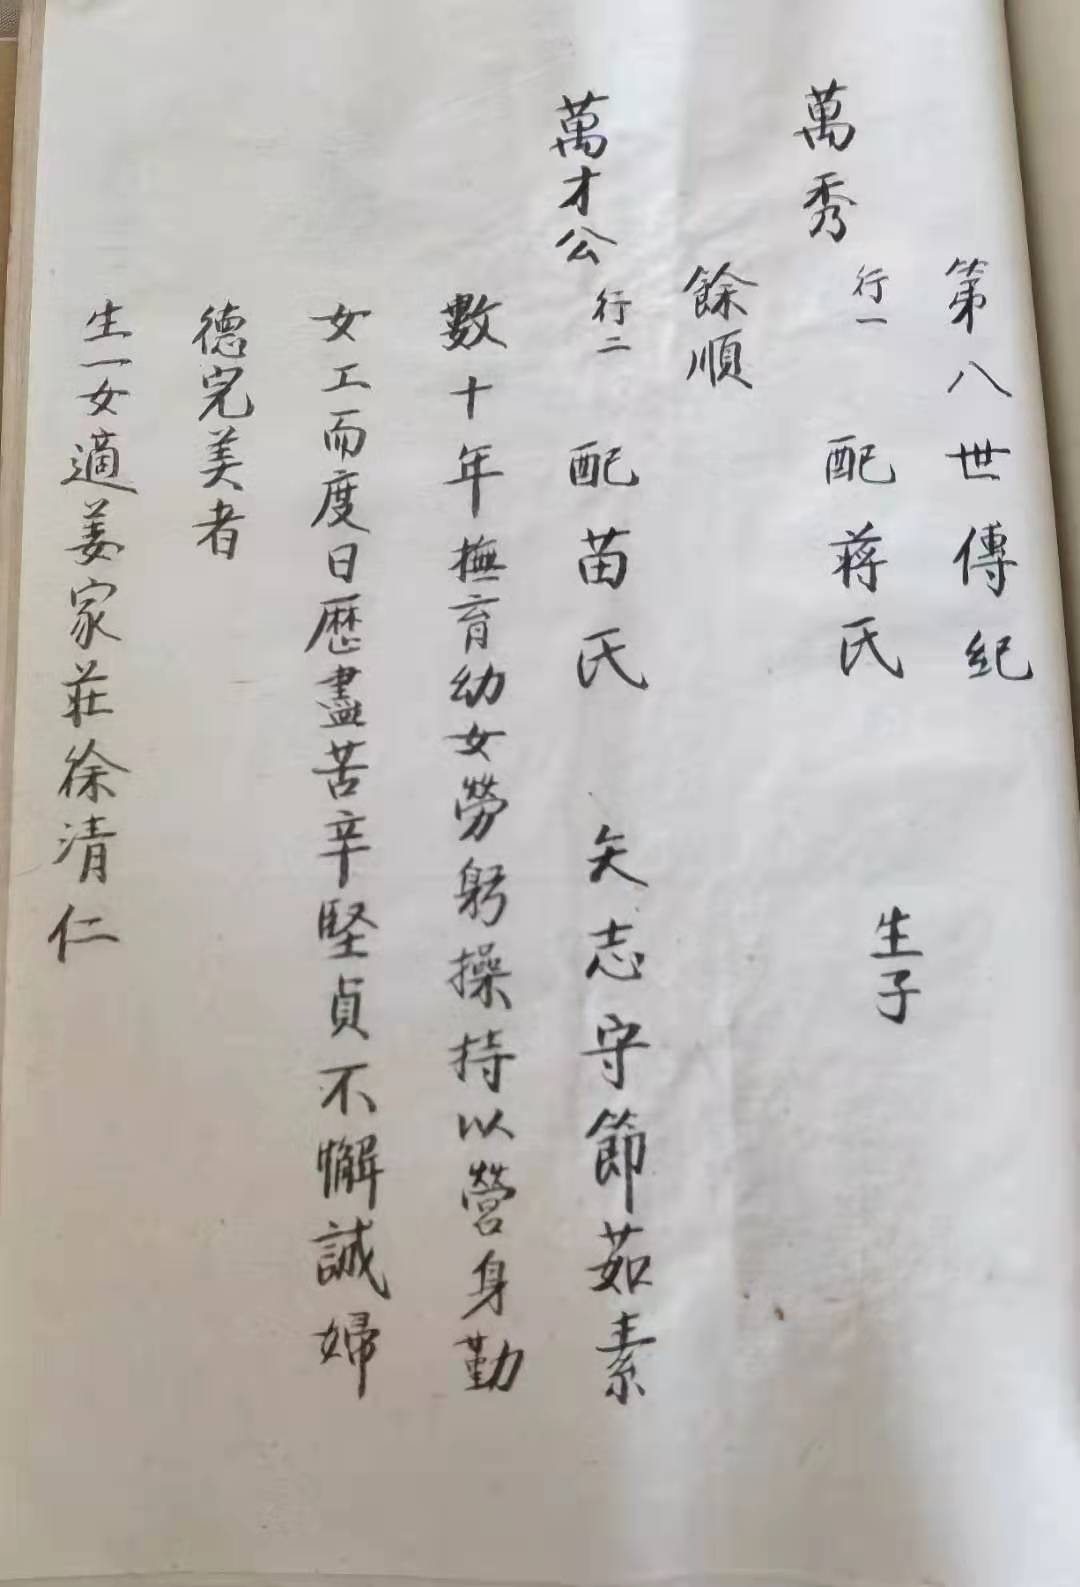 第八世傳紀
萬秀 行一 配蔣氏 生子
餘順
萬才公 行二 配苗氏 矢志守節茹素
數十年撫育幼女勞躬操持以營身勤
女工而度日歷盡苦辛堅貞不懈誠婦
德完美者
生一女適姜家莊徐清仁